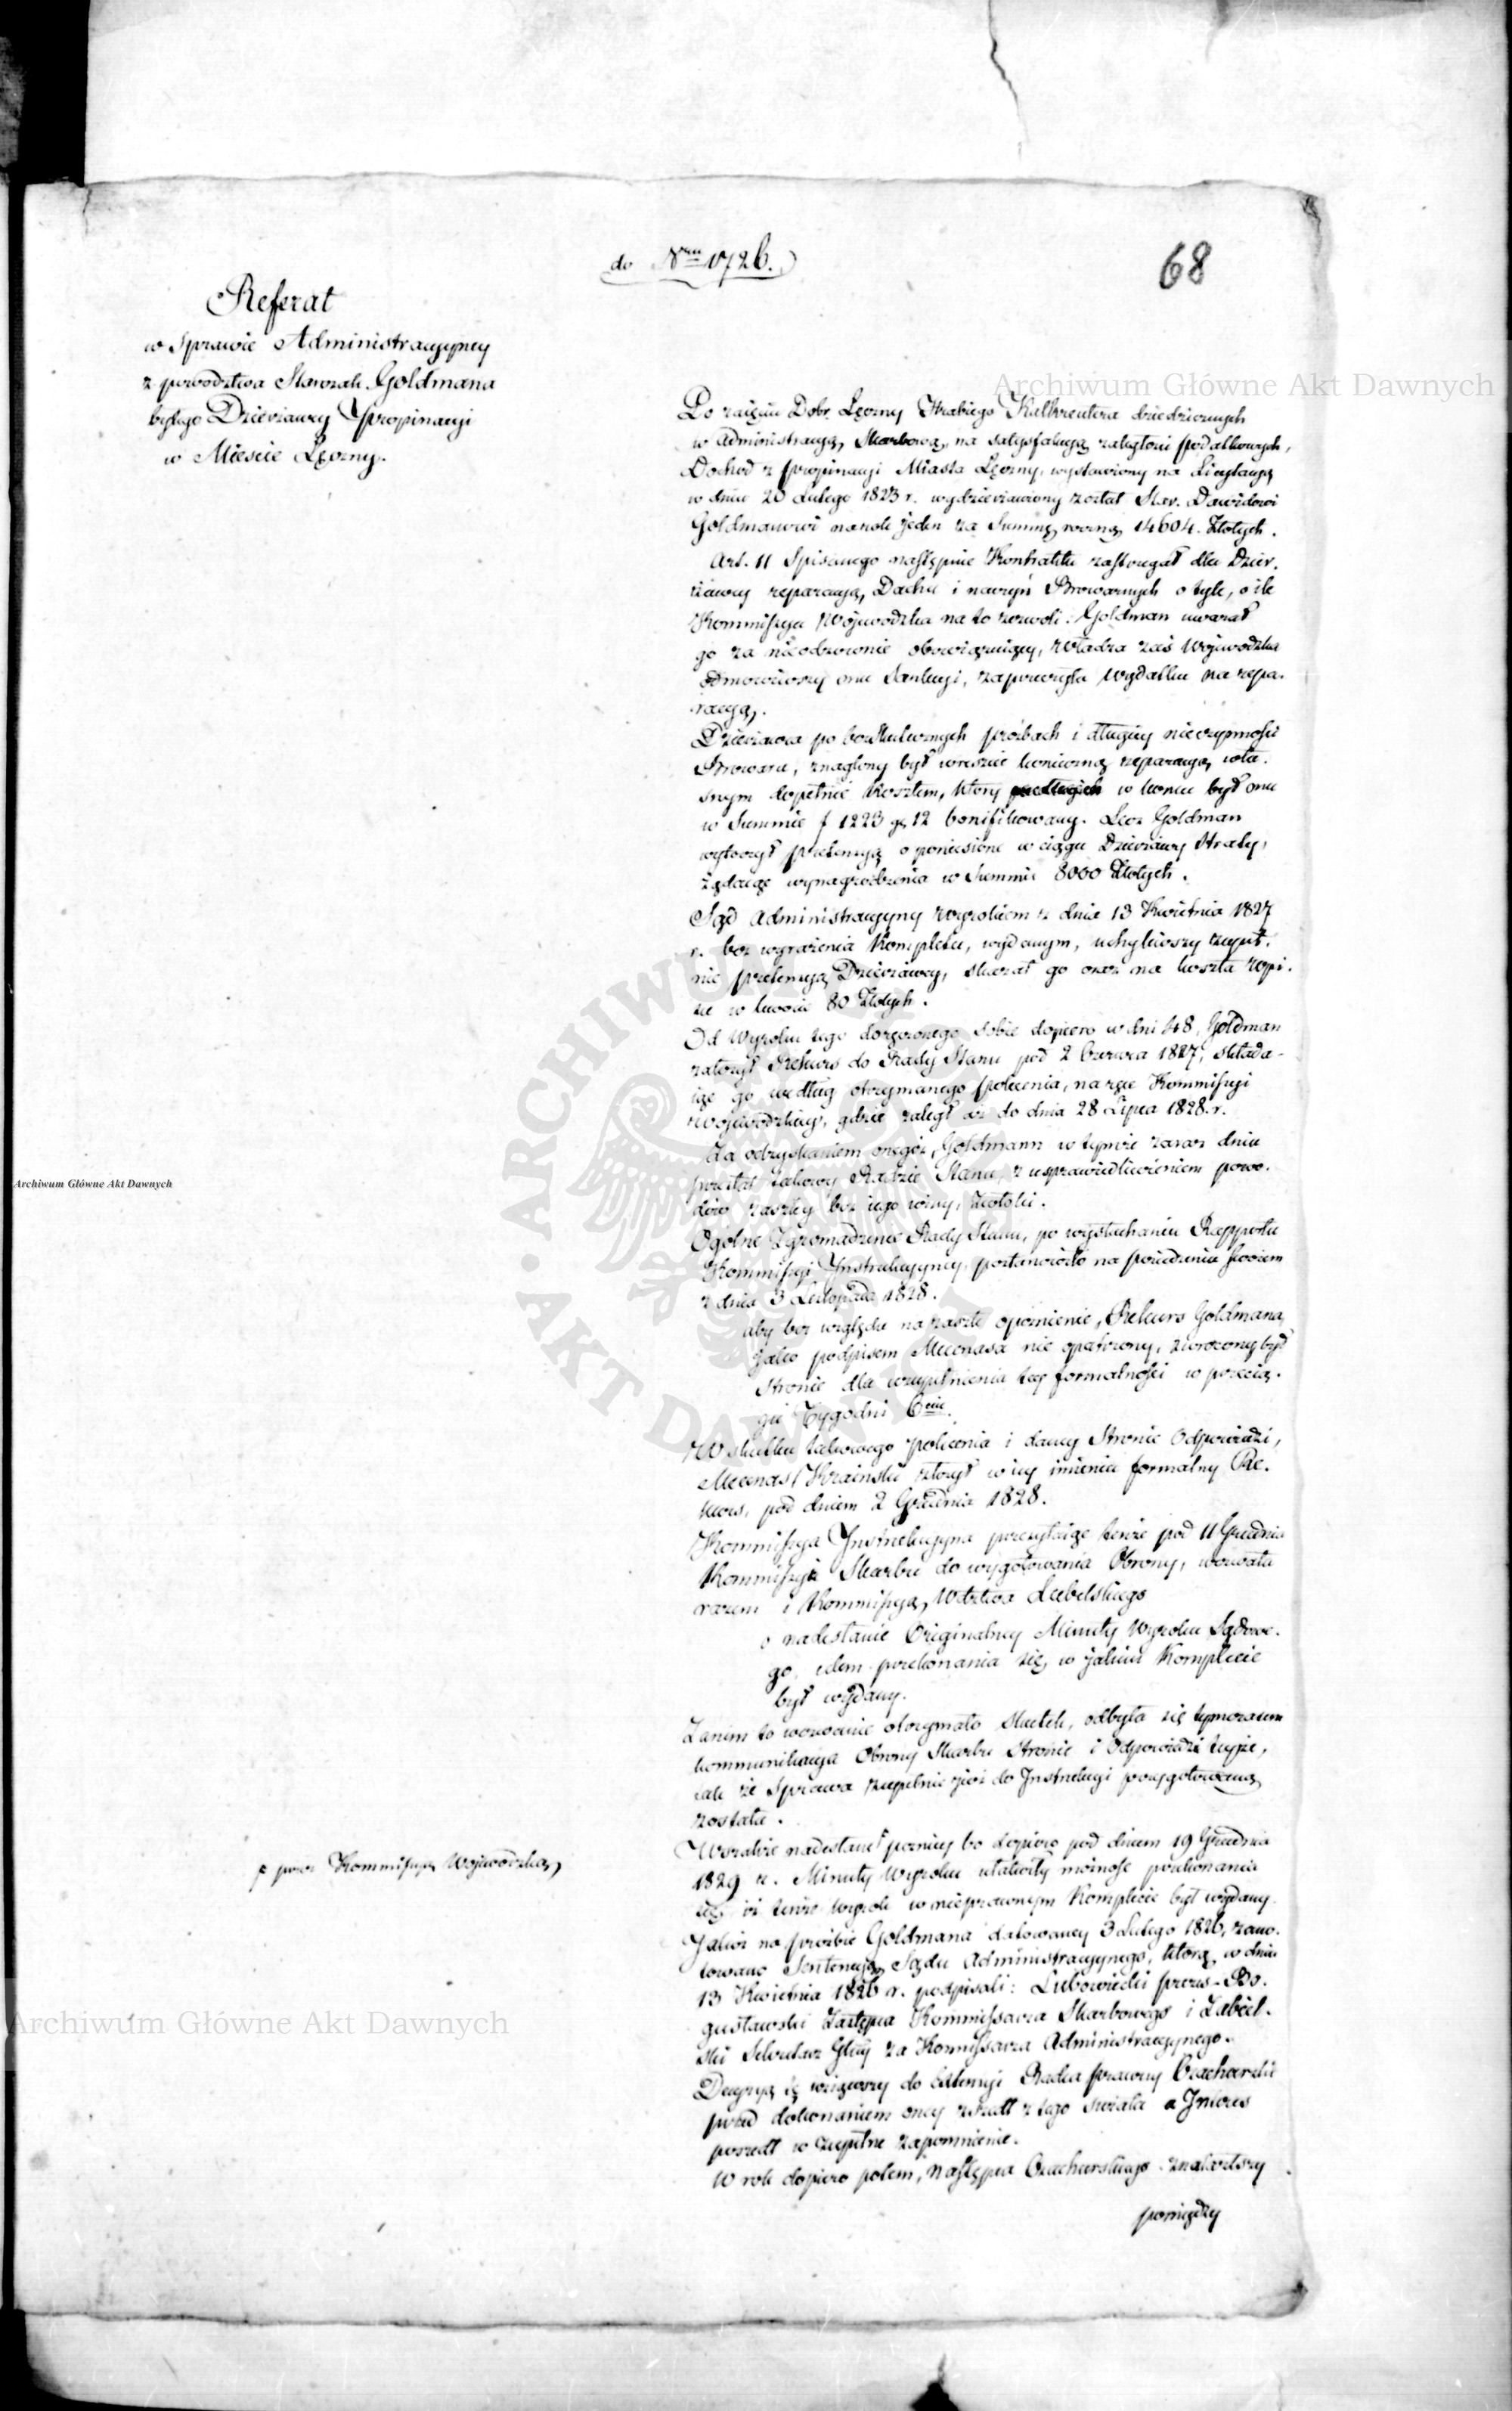 do Nru 1726.
68
Referat
w Sprawie Administracyyney
z powodztwa Starozak. Goldmana
byłego Dzierżawcy Propinacyi
w Mieście Łęczny.
Po zajęciu Dobr Łęczny Hrabiego Kalkreutera dziedzicznych
w Administracyą Skarbową, na satysfakcyą zaległości podatkowych,
Dochod z propinacyi Miasta Łęczny, wystawiony na Licytacyą
w dniu 20 Lutego 1823 r. wydzierżawiony został Star. Dawidowi
Goldmanowi na rok jeden za Summę roczną 14604. Złotych.
Art. 11 Spisanego następnie Kontraktu zastrzegał dla Dzier-
żawcy reparacyą Dachu i naczyń Browarnych o tyle, o ile
Kommissyja Wojewodzka na to zezwoli. Goldman uważał
go za nieodzownie obowiązujący, Władza zaś Wojewodzka
odmowiwszy onu Sankcyi, zaprzeczyła wydatku na repa-
racyą.
Dzierżawca po bezskutecznych prośbach i długiey nieczynności
Browaru, znaglony był wreszcie konieczną reparacyą wła-
snym dopełnić kosztem, ktory w koncu był onu
w Summie f 1223 gr 12 bonifikowany. Lecz Goldman
wytoczył pretensyą o poniesione w ciągu Dzierżawy straty,
żądaiąc wynagrodzenia w Summie 8000 Złotych.
Sąd Administracyyny Wyrokiem z dnia 13 Kwietnia 1827
r. bez wyrażenia Kompletu, wydanym, uchyliwszy zupeł-
nie pretensyą Dzierżawcy, skazał go oraz na koszta Wpi-
su w kwocie 80 Złotych.
Od Wyroku tego doręczonego sobie dopiero w dni 48, Goldman
założył Rekurs do Rady Stanu pod 2 Czerwca 1827, składa-
iąc go według otrzymanego polecenia, na ręce Kommissyi
Wojewodzkiey, gdzie zaległ aż do dnia 28 Lipca 1828. r.
Za odzyskaniem onegoż, Goldmann w tymże zaraz dniu
przesłał takowy Radzie Stanu, z usprawiedliwieniem powo-
dow zaszłey bez iego winy, zwłoki.
Ogolne Zgromadzenie Rady Stanu, po wysłuchaniu Rapportu
Kommissyi Instrukcyyney, postanowiło na posiedzeniu swoiem
z dnia 3 Listopada 1828.
aby bez względu na zaszłe opoznienie, Rekurs Goldmana,
jako podpisem Mecenasa nie opatrzony, zwrocony był
stronie dla uzupełnienia tey formalności w przecią-
gu Tygodni 6ciu.
W skutku takowego polecenia i daney Stronie Odpowiedzi,
Mecenas Krainski złożył w iey imieniu formalny Re-
kurs, pod dniem 2 Grudnia 1828.
Kommissya Instrukcyyna przesyłaiąc tenże pod 11 Grudnia
Kommissyi Skarbu do wygotowania Obrony, wezwała
razem i Kommissyą Wdztwa Lubelskiego
o nadesłanie Originalney Minuty Wyroku Sądowe-
go, celem przekonania się, w jakim Komplecie
był wydany.
Zanim to wezwanie otrzymało skutek, odbyła się tymczasem
kommunikacya Obrony Skarbu Stronie i Odpowiedz teyże,
tak że Sprawa zupełnie już do Instrukcyi przygotowaną
została.
Wszakże nadesłane poźniey bo dopiero pod dniem 19 Grudnia
ƒ przez Kommissyą Wojewodzką,
1829 r. Minuty Wyroku ułatwiły możność przekonania
się, iż tenże wyrok w nieprawnym Komplecie był wydany.
Jakoż na prośbie Goldmana datowaney 3 Lutego 1826, zano-
towano Sentencyą Sądu Administracyynego, którą w dniu
13 Kwietnia 1826 r. podpisali: Lubowiecki prezes, Bo-
gusławski Zastępca Kommissarza Skarbowego i Zabiel-
ski Sekretarz Glny za Kommissarza Administracyynego.
Decyzyą tę wziąwszy do Extensyi Radca prawny Czacharski
przed dokonaniem oney zszedł z tego świata a Interes
poszedł w zupełne zapomnienie.
W rok dopiero potem, Następca Czacharskiego znalazłszy
pomiędzy